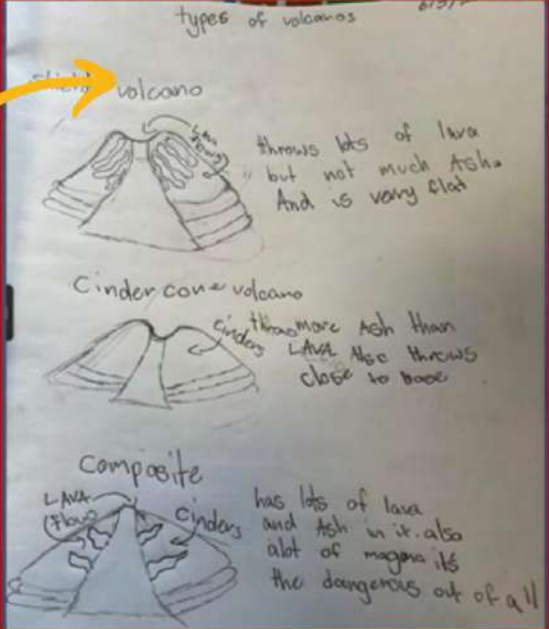 types of volcanos
Shield volcano
LAVA
throws lots of lava
but not much Ash.
And is very flat
Cinder cone volcano
cinders
more Ash than
LAVA Also throws
close to base
composite
LAVA
(Flow)
Cinders
has lots of lava
and Ash in it. also
alot of magma its
the dangerous out of all